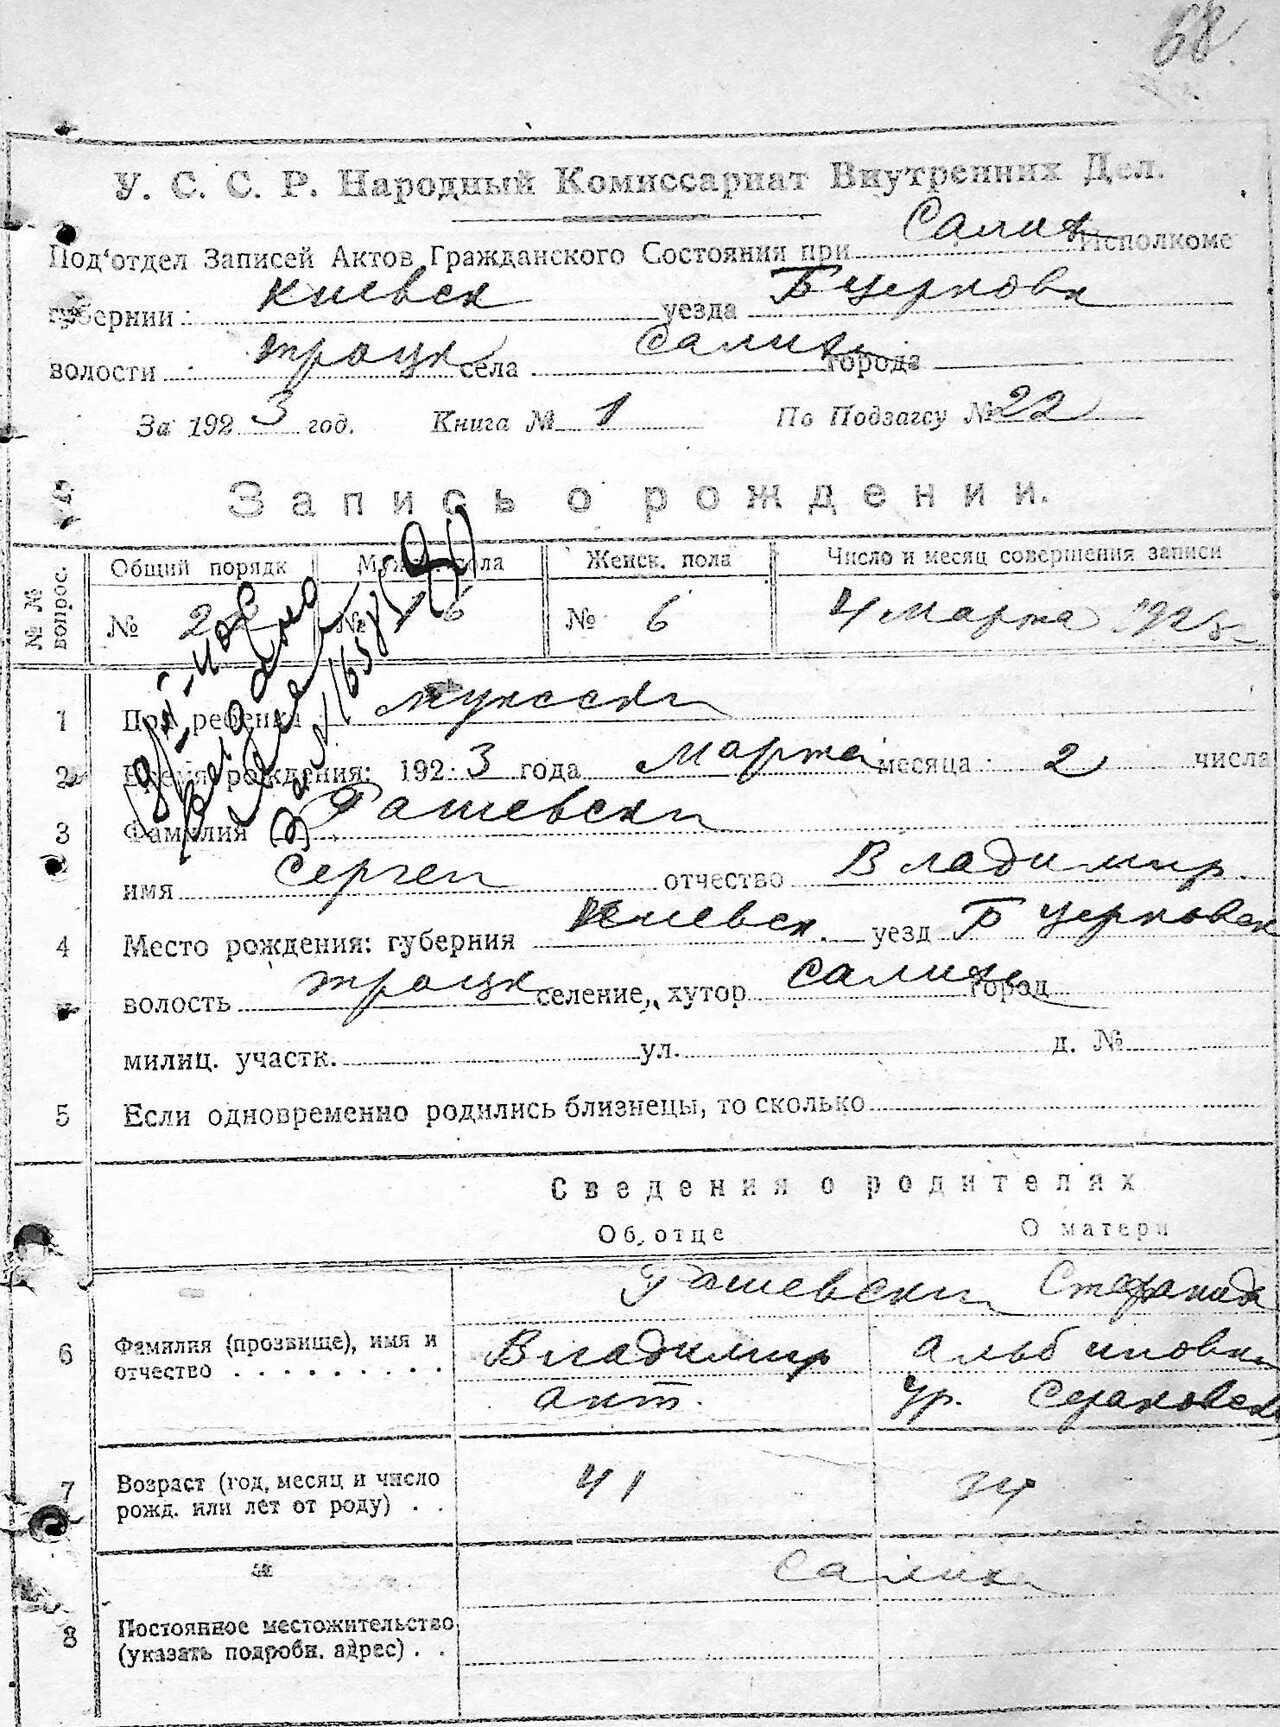 68
У. С. С. Р. Народный Комиссариат Внутренних Дел.
Под'отдел Записей Актов Гражданского Состояния при Салих Исполкоме
губернии Киевск уезда Б церковск
волости троцк села Салиха города
За 1923 год. Книга № 1 По Подзагсу № 22
Запись о рождении.
№ № вопрос. Общий порядк Мужск. пола Женск. пола Число и месяц совершения записи
№ 22 № 16 № 6 4 Марта 1923
1 Пол ребенка мужски
2 Время рождения: 1923 года Марта месяца 2 числа
3 Фамилия Рашевски
имя Сергеи отчество Владимир.
4 Место рождения: губерния Киевск. уезд Б церковск
волость троцк селение, хутор Салиха город
милиц. участк. ул. д. №
5 Если одновременно родились близнецы, то сколько
Сведения о родителях
Об отце О матери
Рашевски Стефанида
6 Фамилия (прозвище), имя и отчество Владимир Альбиновн
Ант. Ур. Сераковск
7 Возраст (год, месяц и число рожд. или лет от роду) 41 34
Салиха
8 Постоянное местожительство (указать подробн. адрес)